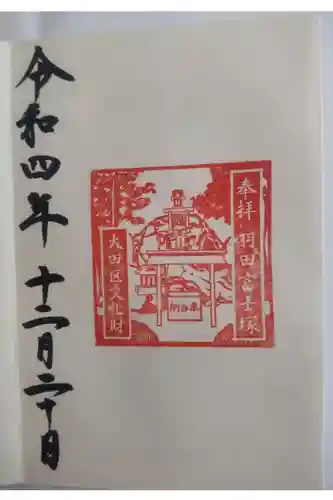 奉拝 羽田富士塚
大田区文化財
令和四年 十二月二十日